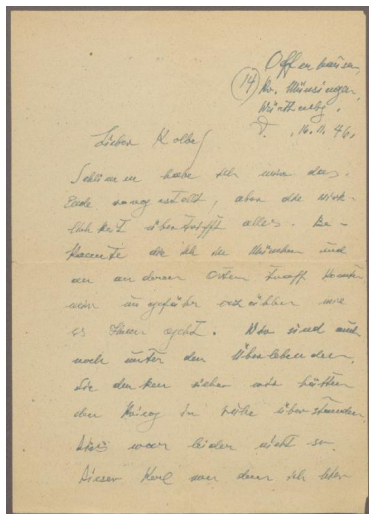 Offenhausen,
14 Kr. Münsingen,
Württembg.
d. 16.11.46.
Lieber Kolbe,
Schlimm habe ich mir das
Ende vorgestellt, aber die Wirk-
lichkeit übertrifft alles. Be-
kannte die ich in München und
an anderen Orten traf konnten
mir ungefähr erzählen wie
es Ihnen geht. Wir sind auch
noch unter den Überlebenden.
Sie denken sicher wir hätten
den Krieg in Ruhe überstanden
das war leider nicht so.
Dieser Kerl von dem ich